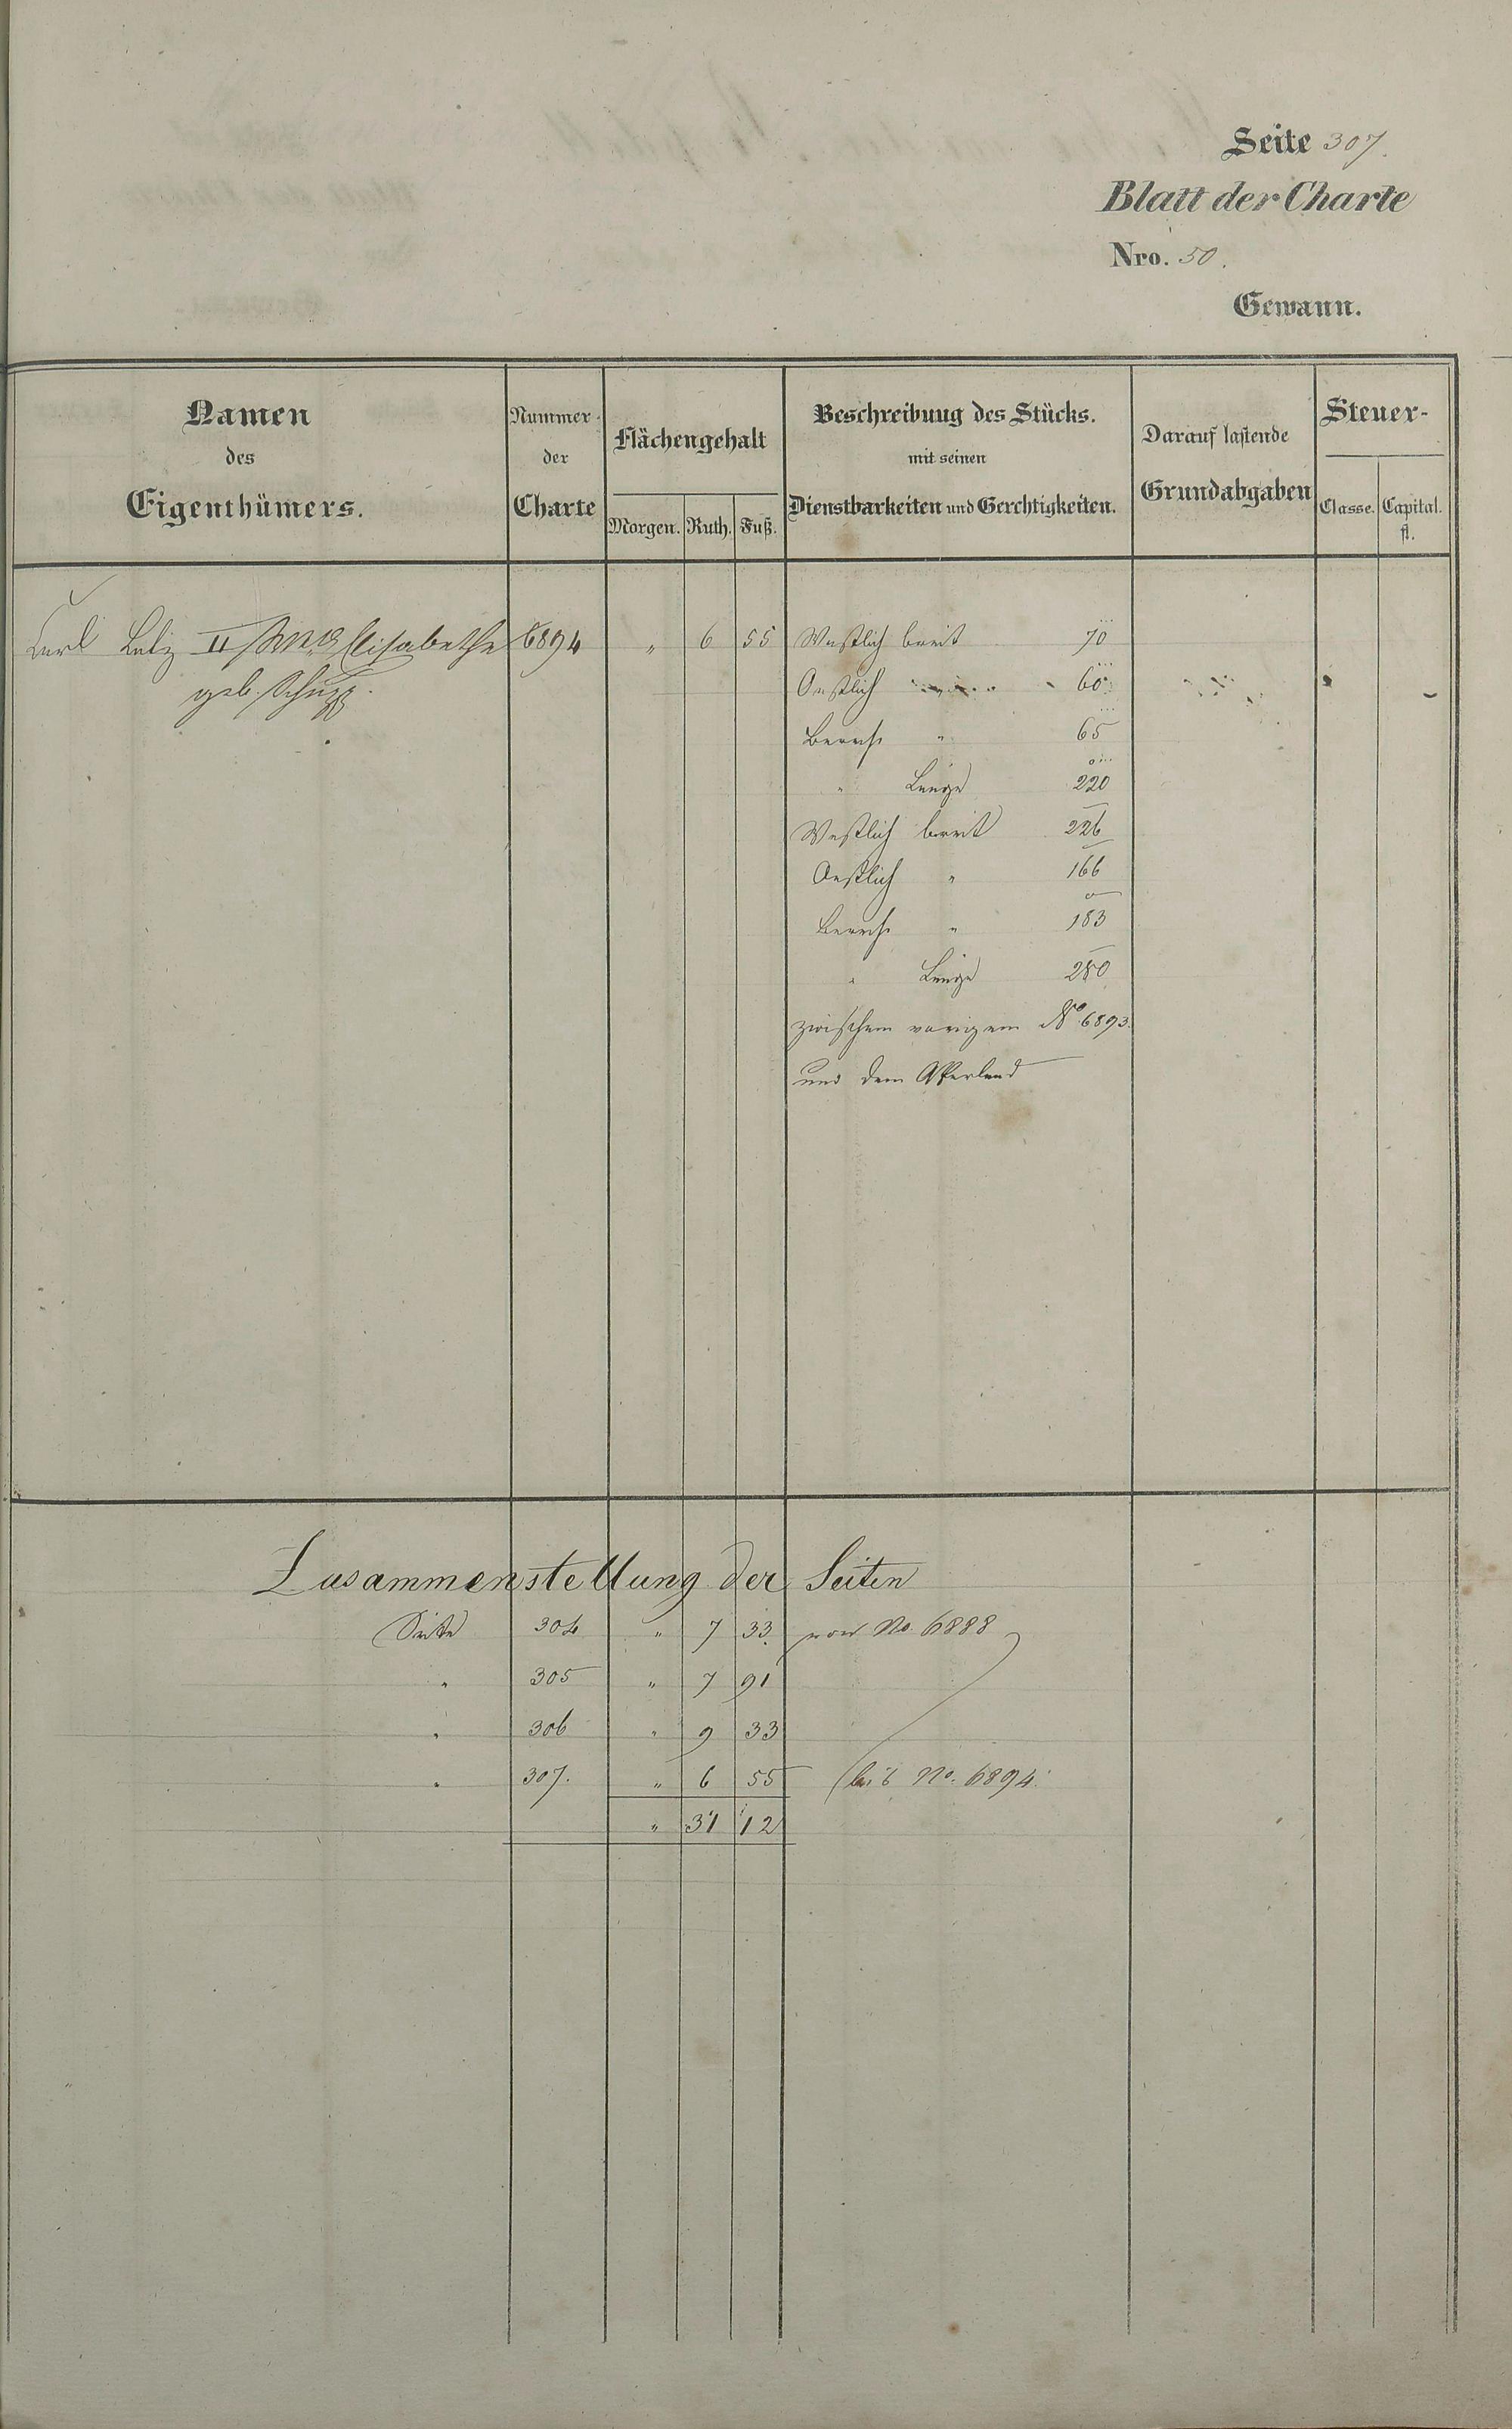 Seite 307.
Blatt der Charte
Nro. 50.
Gewann.
Namen des Eigenthümers.
Nummer der Charte
Flächengehalt
Morgen. Ruth. Fuß.
Beschreibung des Stücks.
mit seinen
Dienstbarkeiten und Gerchtigkeiten.
Darauf lastende
Grundabgaben
Steuer-
Classe. Capital.
fl.
Carl II Elisabethe 6894 " 6 55 Westlich breit 70
geb. Schupp. Oestlich " 60
" 65
" Länge 220
Westlich breit 226
Oestlich " 166
" 183
" Länge 280
zwischen vorigem No 6893.
und dem Ackerland
Zusammenstellung der Seiten
Seite 304 " 7 33 von No. 6888
" 305 " 7 91
" 306 " 9 33
" 307. " 6 55 bis No. 6894.
" 31 12